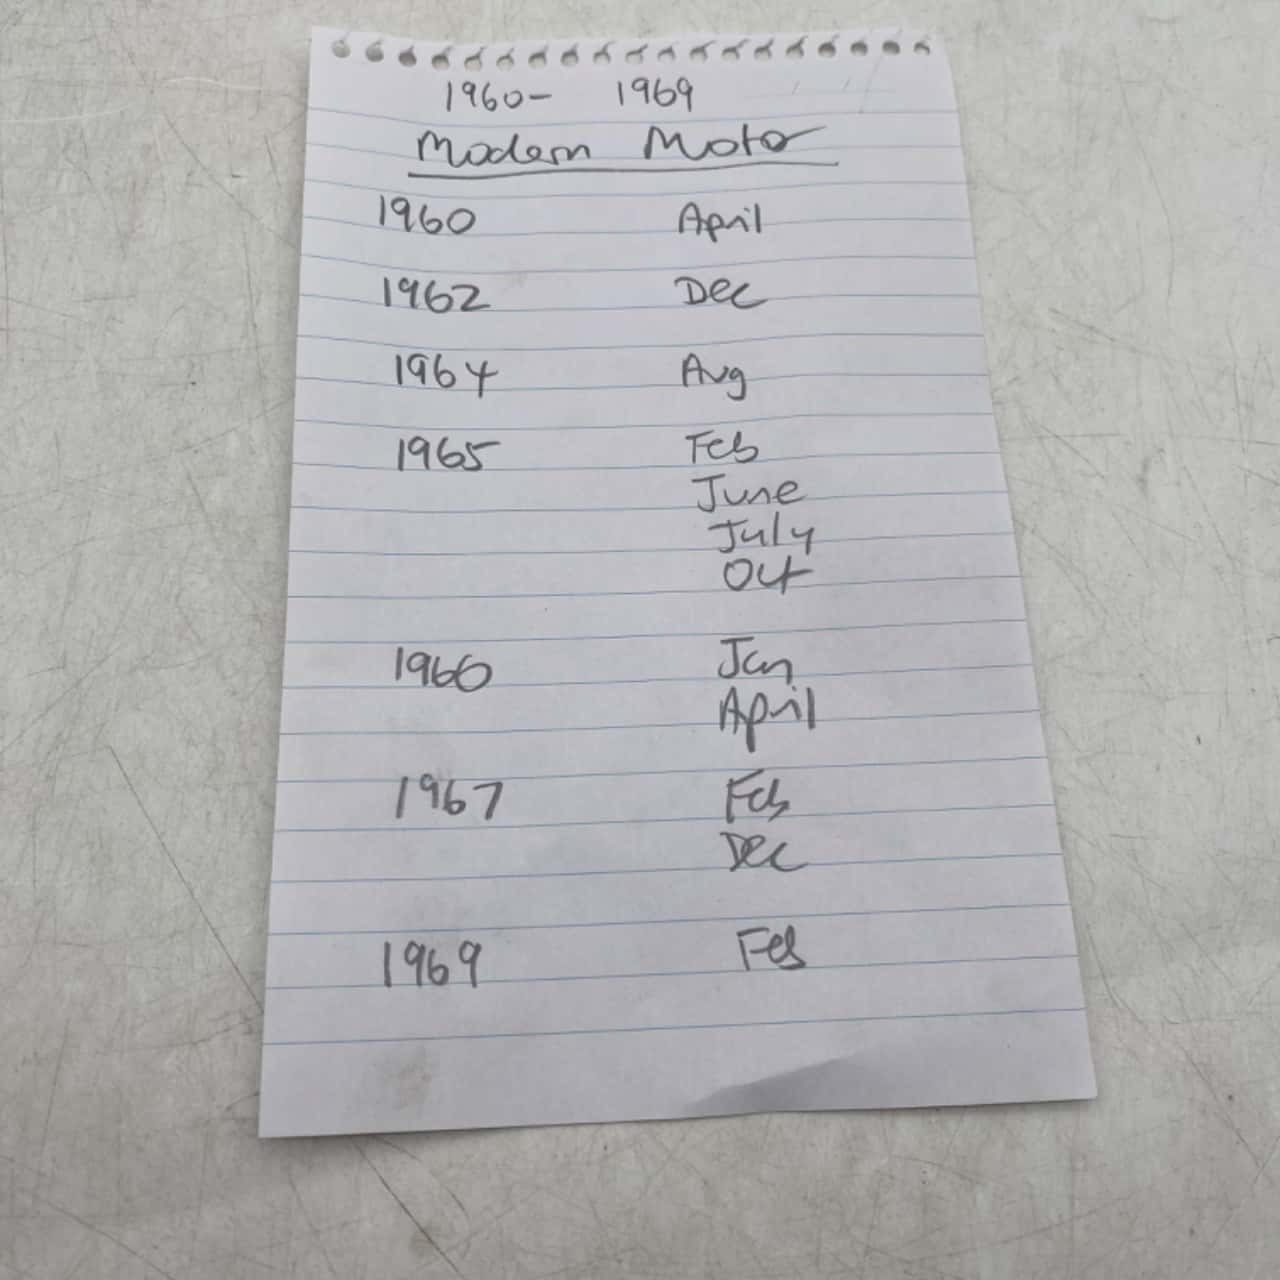 1960- 1969
Modern Motor
1960 April
1962 Dec
1964 Aug
1965 Feb
June
July
Oct
1966 Jan
April
1967 Feb
Dec
1969 Feb